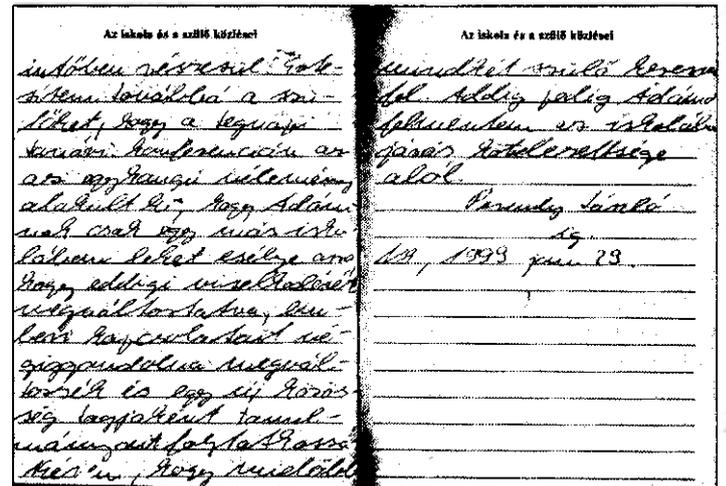 Az iskola és a szülő közlései
intőben részesül. Érte-
sítem továbbá a szü-
lőket, hogy a tegnapi
tanári konferencián az
az egyhangú vélemény
alakult ki, hogy Ádám-
nak csak egy más isko-
lában lehet esélye arra
hogy eddigi viselkedését
megváltoztatva, em-
beri kapcsolatait vé-
giggondolva megvál-
tozzék és egy új közös-
ség tagjaként tanul-
mányait folytathassa
Kérem, hogy mielőbb
Az iskola és a szülő közlései
mindkét szülő keressen
fel. Addig pedig Ádámot
felmentem az iskolába
járás kötelezettsége
alól.
László
ig.
1999 jun 29.